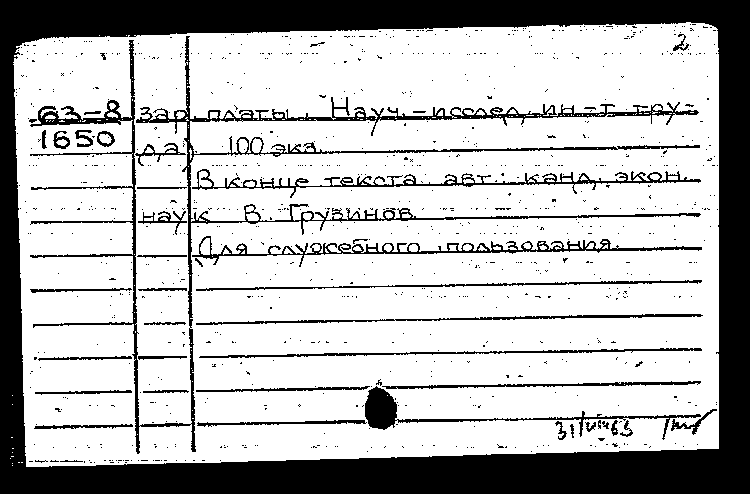 2
63-8 зар. платы. Науч.-исслед. ин-т тру-
1650 да) 100 экз.
В конце текста авт.: канд. экон.
наук В. Грузинов.
Для служебного пользования.
31/VIII 63